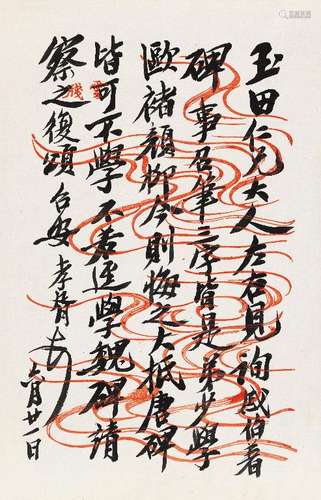 玉田仁兄大人左右見詢戚伯着
碑事召筆二序皆是弟少學
歐褚顏柳今則悔之大抵唐碑
皆可不學不若逕學魏碑請
察之復頌台安孝胥
六月廿一日